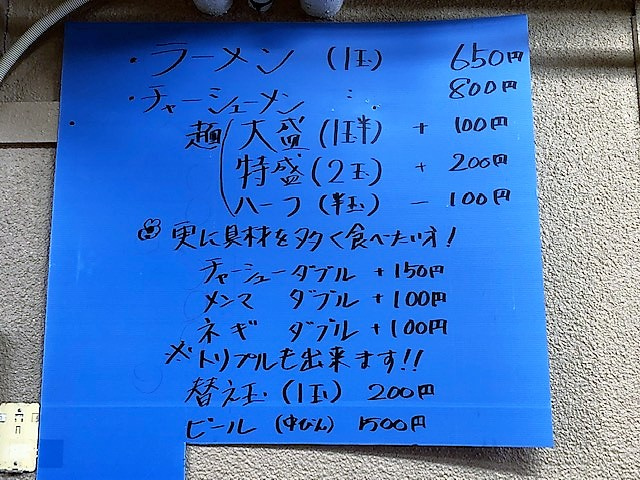 ・ラーメン (1玉) 650円
・チャーシューメン 〃 800円
麺(大盛(1玉半) + 100円
特盛(2玉) + 200円
ハーフ(半玉) − 100円
更に具材を多く食べたい方!
チャーシューダブル +150円
メンマ ダブル +100円
ネギ ダブル +100円
※トリプルも出来ます!!
替え玉(1玉) 200円
ビール (中びん) 500円